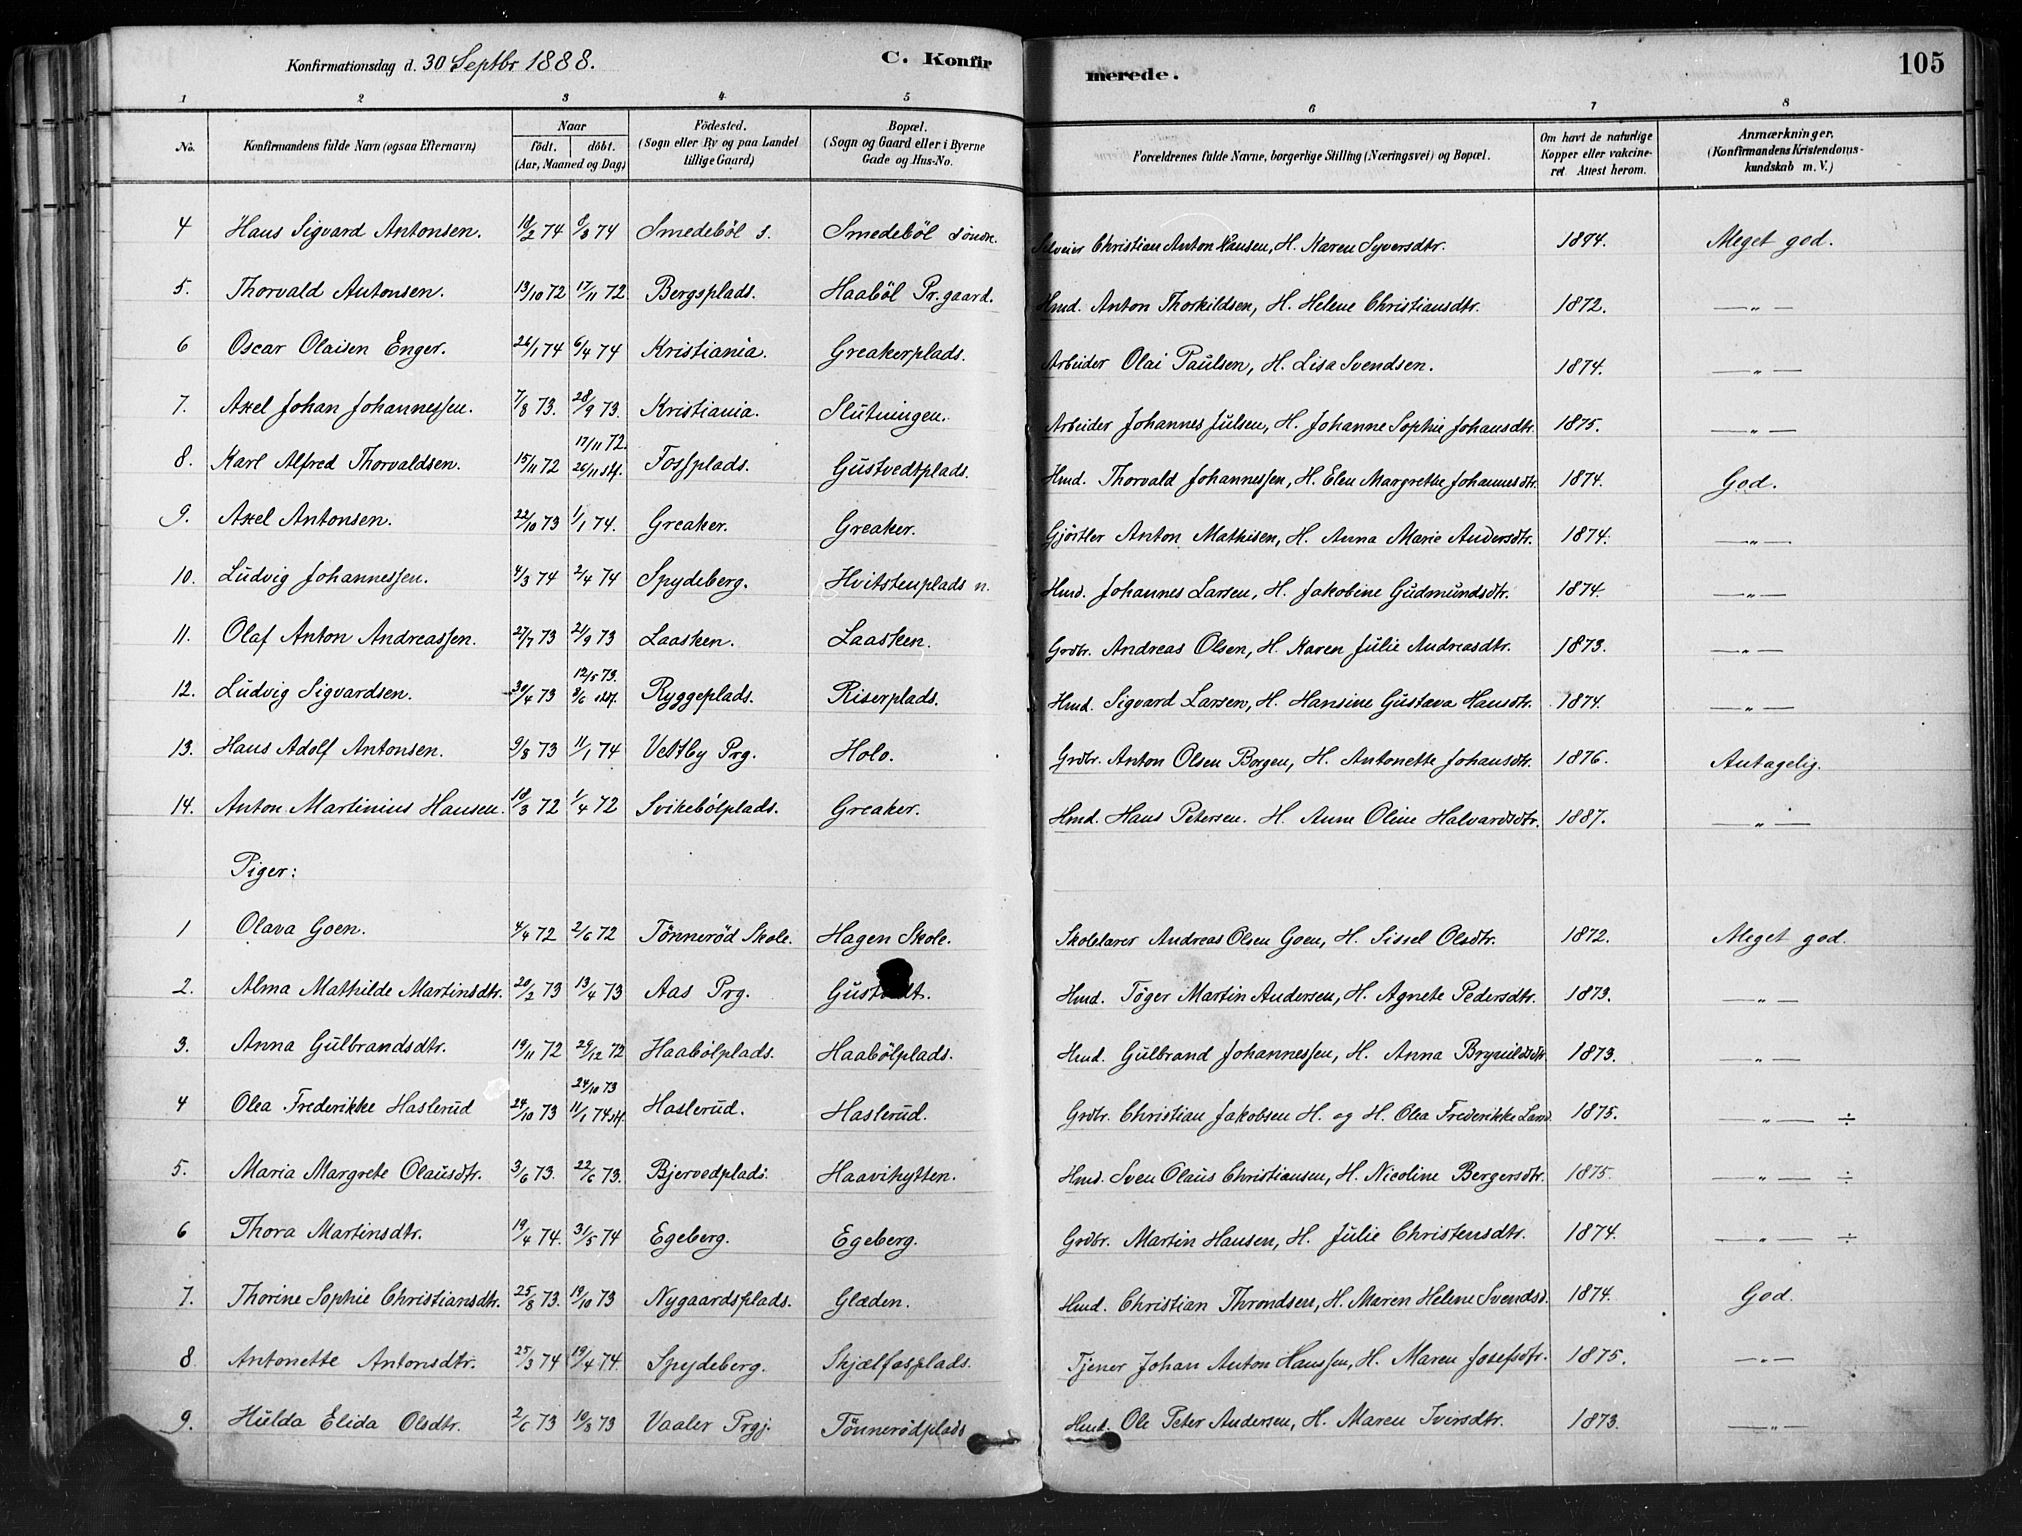 Konfirmationsdag d. 30 Septbr 1888. C. Konfirmerede. 105
1 2 3 4 5 6 7 8
No. Konfirmandens fulde Navn (ogsaa Efternavn) Naar födt. döbt. (Aar, Maaned og Dag) Födested. (Sogn eller By og paa Landet tillige Gaard) Bopæl. (Sogn og Gaard eller i Byerne Gade og Hus-No. Forældrenes fulde Navne, borgerlige Stilling (Næringsvei) og Bopæl. Om havt de naturlige Kopper eller vakcineret Attest herom. Anmærkninger. (Konfirmandens Kristendomskundskab m. V.)
4 Hans Sigvard Antonsen. 18/2 74 8/3 74 Smedeböl s. Smedeböl söndre. Selveier Christian Anton Hansen, H. Karen Syversdtr. 1894. Meget god.
5. Thorvald Antonsen. 13/10 72 17/11 72 Bergsplads. Haaböl Pr.gaard. Hmd. Anton Thorkildsen, H. Helene Christiansdtr. 1872. —„—
6 Oscar Olaisen Enger. 26/1 74 6/4 74 Kristiania. Greakerplads. Arbeider Olai Paulsen, H. Lisa Svendsen. 1874. —„—
7. Axel Johan Johannessen. 7/8 73. 28/9 73. Kristiania. Slutningen. Arbeider Johannes Julsen, H. Johanne Sophie Johansdtr. 1875. —„—
8. Karl Alfred Thorvaldsen. 15/11 72 17/11 72. 26/11 stf. Fossplads. Gustvedtplads. Hmd. Thorvald Johannessen, H. Elen Margrethe Johannesdtr. 1874. God.
9. Axel Antonsen. 22/10 73 1/1 74. Greaker. Greaker. Gjörtler Anton Mathisen, H. Anna Marie Andersdtr. 1874. —„—
10. Ludvig Johannessen. 4/3 74 2/4 74 Spydeberg. Hvitstenplads n. Hmd. Johannes Larsen, H. Jakobine Gudmundsdtr. 1874. —„—
11. Olaf Anton Andreassen. 27/7 73 21/9 73 Laasken. Laasken. Grdbr. Andreas Olsen, H. Karen Julie Andreasdtr. 1873. —„—
12. Ludvig Sigvardsen. 30/4 73 12/5 73. 8/6 stf. Ryggeplads. Riserplads. Hmd. Sigvard Larsen, H. Hansine Gustava Hansdtr. 1874. —„—
13. Hans Adolf Antonsen. 9/8 73 11/1 74 Vestby Prg. Holo. Grdbr. Anton Olsen Borgen, H. Antonette Johansdtr. 1876. Antagelig.
14. Anton Martinius Hansen. 18/3 72 1/4 72 Svikebölplads. Greaker. Hmd. Hans Petersen. H. Anne Oline Halvardsdtr. 1887. —„—
Piger:
1 Olava Goen. 4/4 72 2/6 72 Tönneröd Skole. Hagen Skole. Skolelærer Andreas Olsen Goen, H. Sissel Olsdtr. 1872. Meget god.
2. Alma Mathilde Martinsdtr. 20/2 73 13/4 73 Aas Prg. Hmd. Töger Martin Andersen, H. Agnete Pedersdtr. 1873. —„—
3. Anna Gulbrandsdtr. 19/11 72 29/12 72 Haabölplads. Haabölplads. Hmd. Gulbrand Johannessen, H. Anna Brynildsdtr. 1873. —„—
4 Olea Frederikke Haslerud 24/10 73 24/10 73 11/1 74 stf. Haslerud. Haslerud. Grdbr. Christian Jakobsen H. og H. Olea Frederikke Larsd. 1875. —„— ÷
5. Maria Margrete Olausdtr. 3/6 73. 22/6 73. Bjervedplads. Haavihytten. Hmd. Sven Olaus Christiansen, H. Nicoline Bergersdtr. 1875. —„— ÷
6 Thora Martinsdtr. 19/4 74. 31/5 74 Egeberg. Egeberg. Grdbr. Martin Hansen, H. Julie Christensdtr. 1874. —„— ÷
7. Thorine Sophie Christiansdtr. 25/8 73. 19/10 73 Nygaardsplads. Glæden. Hmd. Christian Throndsen, H. Maren Helene Svendsd. 1874. God.
8 Antonette Antonsdtr. 25/3 74 19/4 74. Spydeberg. Skjælfosplads. Tjener Johan Anton Hanssen, H. Maren Josefsdtr. 1875. —„—
9. Hulda Elida Olsdtr. 2/6 73 10/8 73 Vaaler Prgj. Tönnerödplads Hmd. Ole Peter Andersen, H. Maren Iversdtr. 1873. —„—